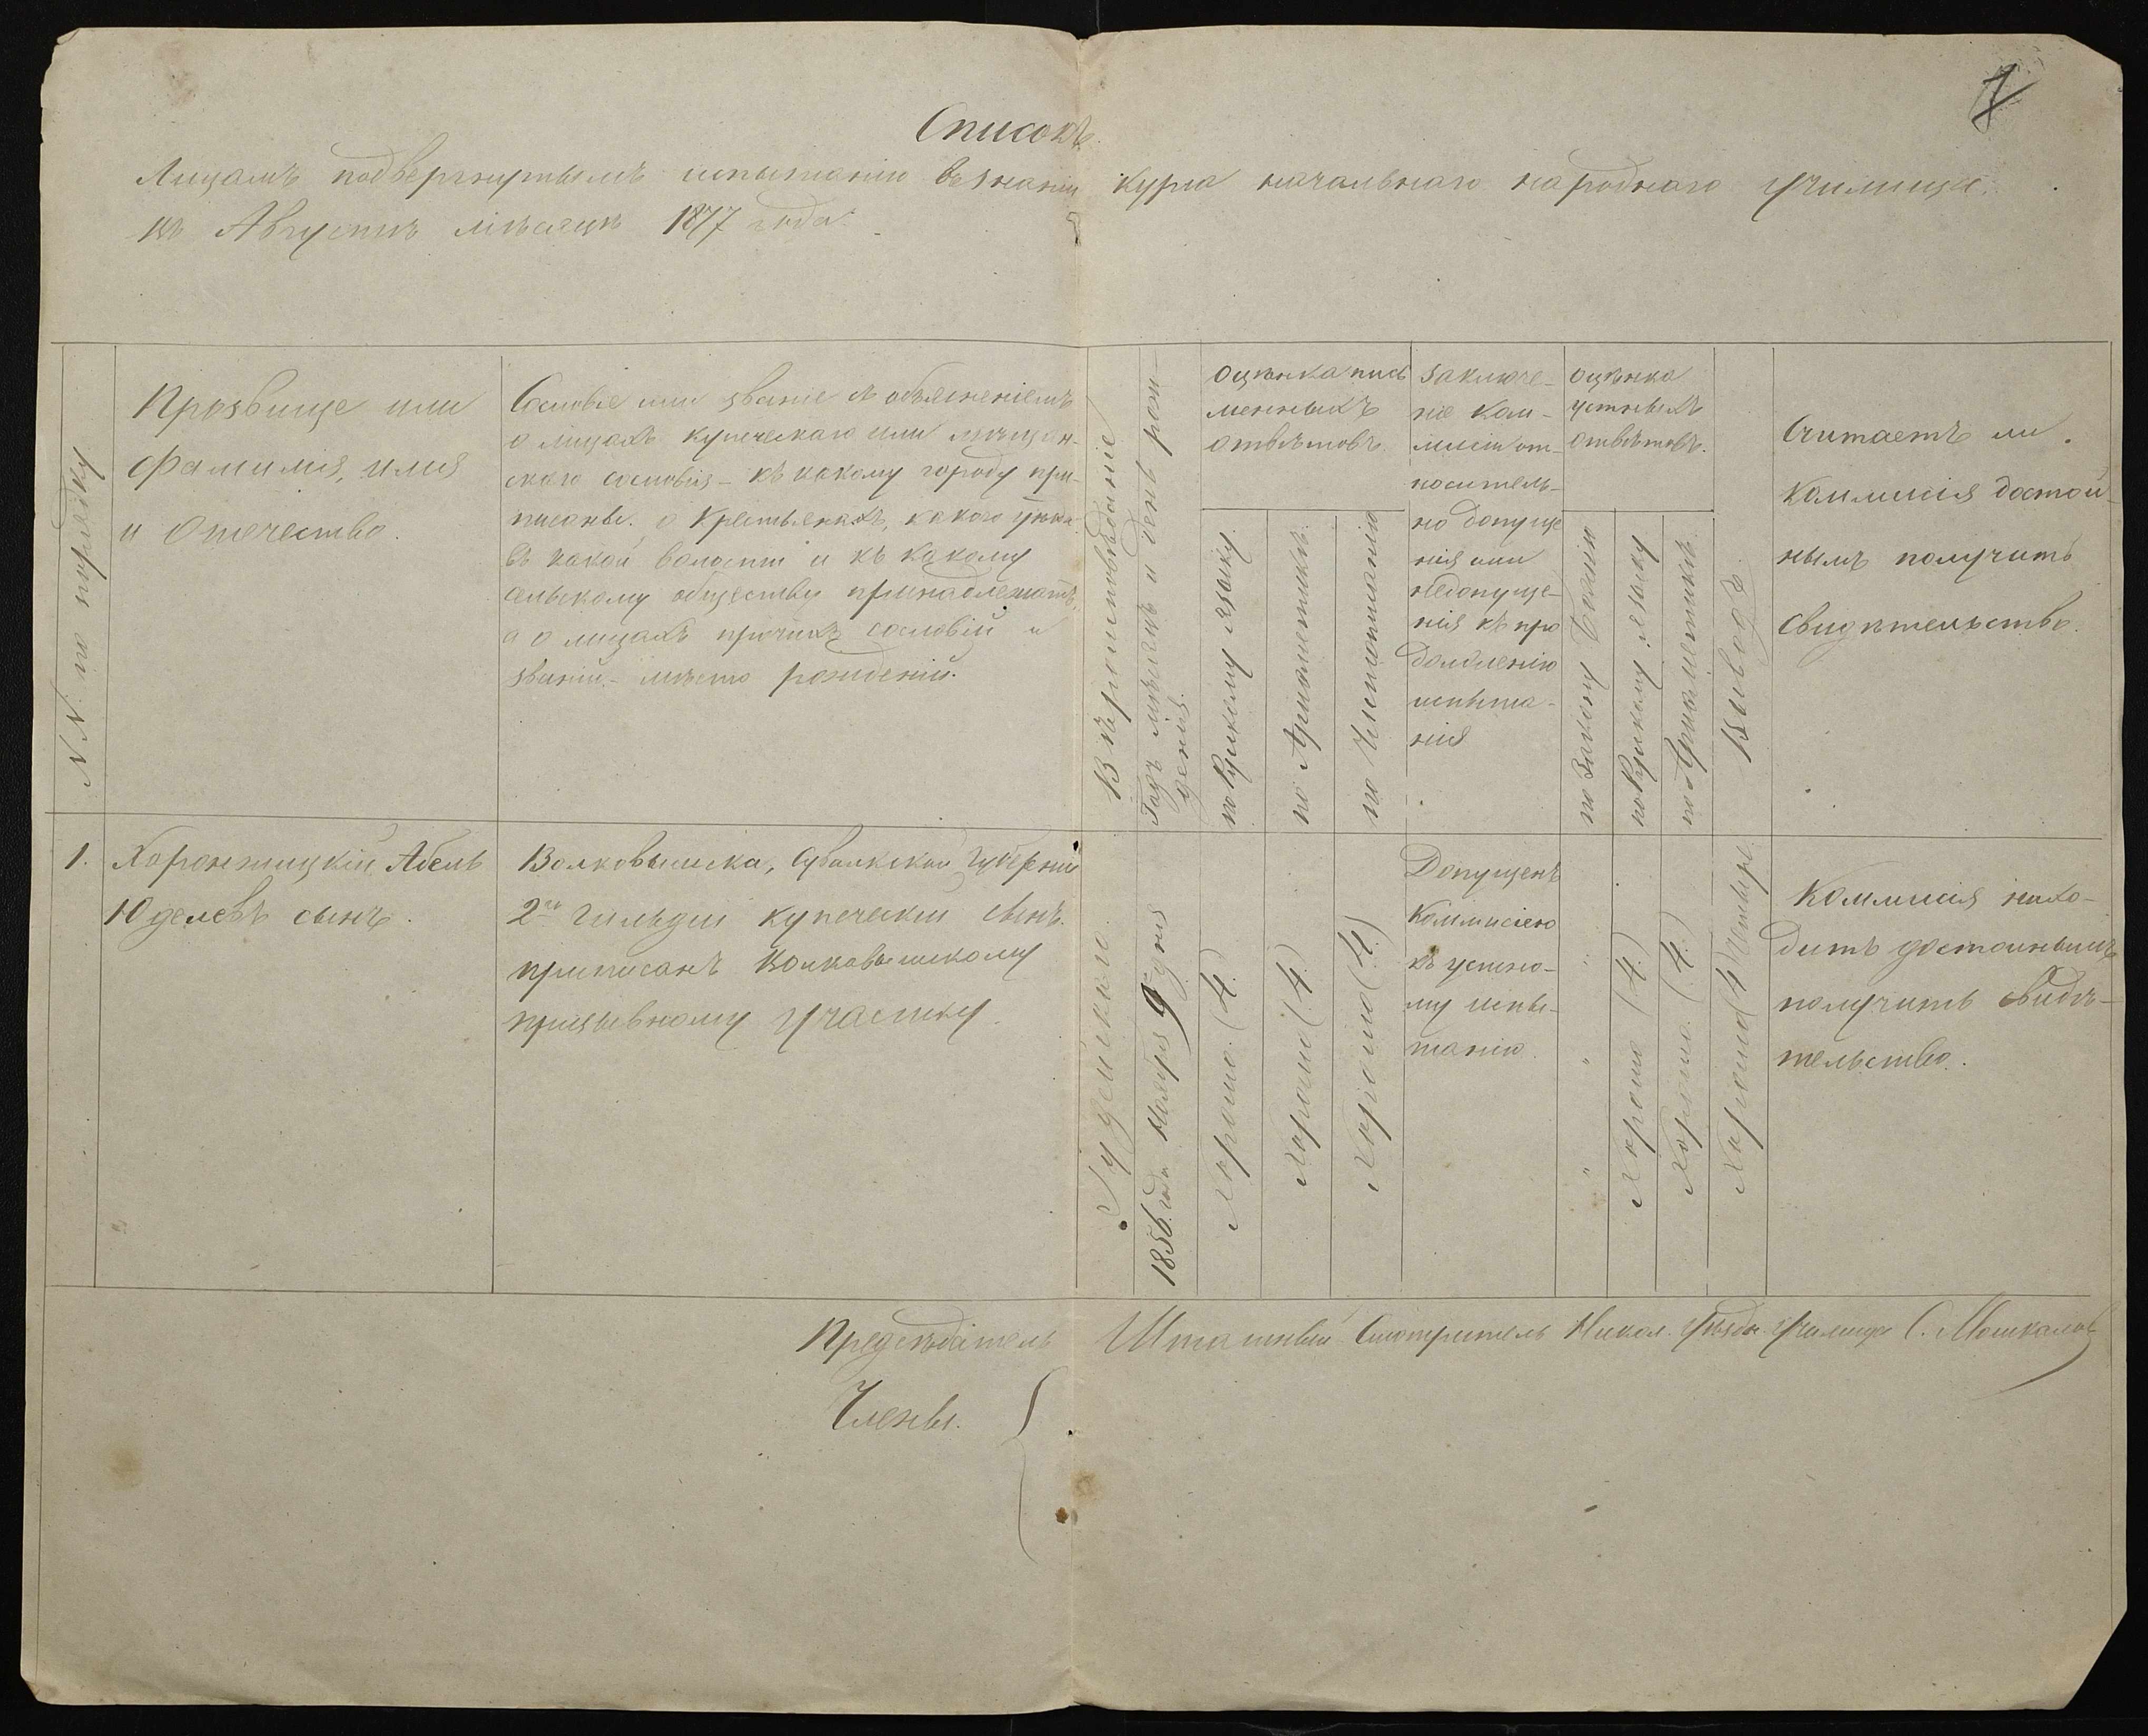 Списокъ
Лицамъ подвергнутымъ испытанію въ знаніи курса начальнаго народнаго училища.
въ Августѣ мѣсяцѣ 1877 года.
N.N. по порядку
Прозвище или
фамилія, имя
и отечество.
Сословіе или званіе съ объясненіемъ
о лицахъ купеческаго или мѣщан-
скаго сословія – къ какому городу при-
писаны. о Крестьянахъ, какого уѣзда
въ какой волости и къ какому
сельскому обществу принадлежатъ,
а о лицахъ прочихъ сословій и
званій – мѣсто рожденій.
Вѣроисповѣданіе
Годъ мѣсяцъ и день рож-
денія.
оцѣнка пись
менныхъ
отвѣтовъ.
по Русскому языку.
по Ариѳметикѣ.
по Чистописанію
заключе-
ніе Ком-
мисіи от-
носитель-
но допуще
нія или
недопуще-
нія къ про
долженію
испыта-
нія
оцѣнка
устныхъ
отвѣтовъ.
по Закону Божію
по Русскому языку
по Ариѳметикѣ.
Выводъ
Считаетъ ли
коммисія достой-
нымъ получить
свидѣтельство.
1. Хоронжицкій, Абель
Юделевъ сынъ.
Волковышска, Сувалкской Губерніи
2й Гильдіи купеческій сынъ.
приписанъ Волковышскому
призывному участку.
Іудейскаго
1856 года Ноября 9 дня
Хорошо. (4.)
Хорошо (4.)
Хорошо (4.)
Допущенъ
Коммисіею
къ устно-
му испы-
танію.
Хорошо (4.)
Хорошо. (4.)
Хорошо (4) Четыре
Коммисія нахо-
дитъ достойнымъ
получить свидѣ-
тельство.
Предсѣдатель Штатный Смотритель Никол. Уѣздн. Училища С. Мошкалов
Члены.